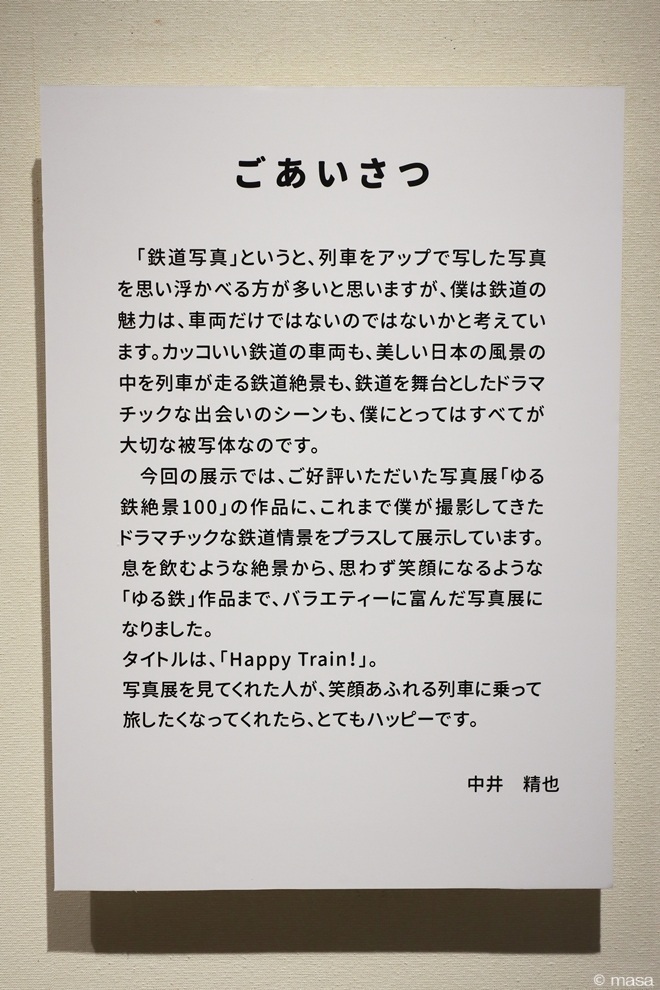 ごあいさつ
「鉄道写真」というと、列車をアップで写した写真
を思い浮かべる方が多いと思いますが、僕は鉄道の
魅力は、車両だけではないのではないかと考えてい
ます。カッコいい鉄道の車両も、美しい日本の風景の
中を列車が走る鉄道絶景も、鉄道を舞台としたドラマ
チックな出会いのシーンも、僕にとってはすべてが
大切な被写体なのです。
今回の展示では、ご好評いただいた写真展「ゆる
鉄絶景100」の作品に、これまで僕が撮影してきた
ドラマチックな鉄道情景をプラスして展示しています。
息を飲むような絶景から、思わず笑顔になるような
「ゆる鉄」作品まで、バラエティーに富んだ写真展に
なりました。
タイトルは、「Happy Train!」。
写真展を見てくれた人が、笑顔あふれる列車に乗って
旅したくなってくれたら、とてもハッピーです。
中井 精也
© masa